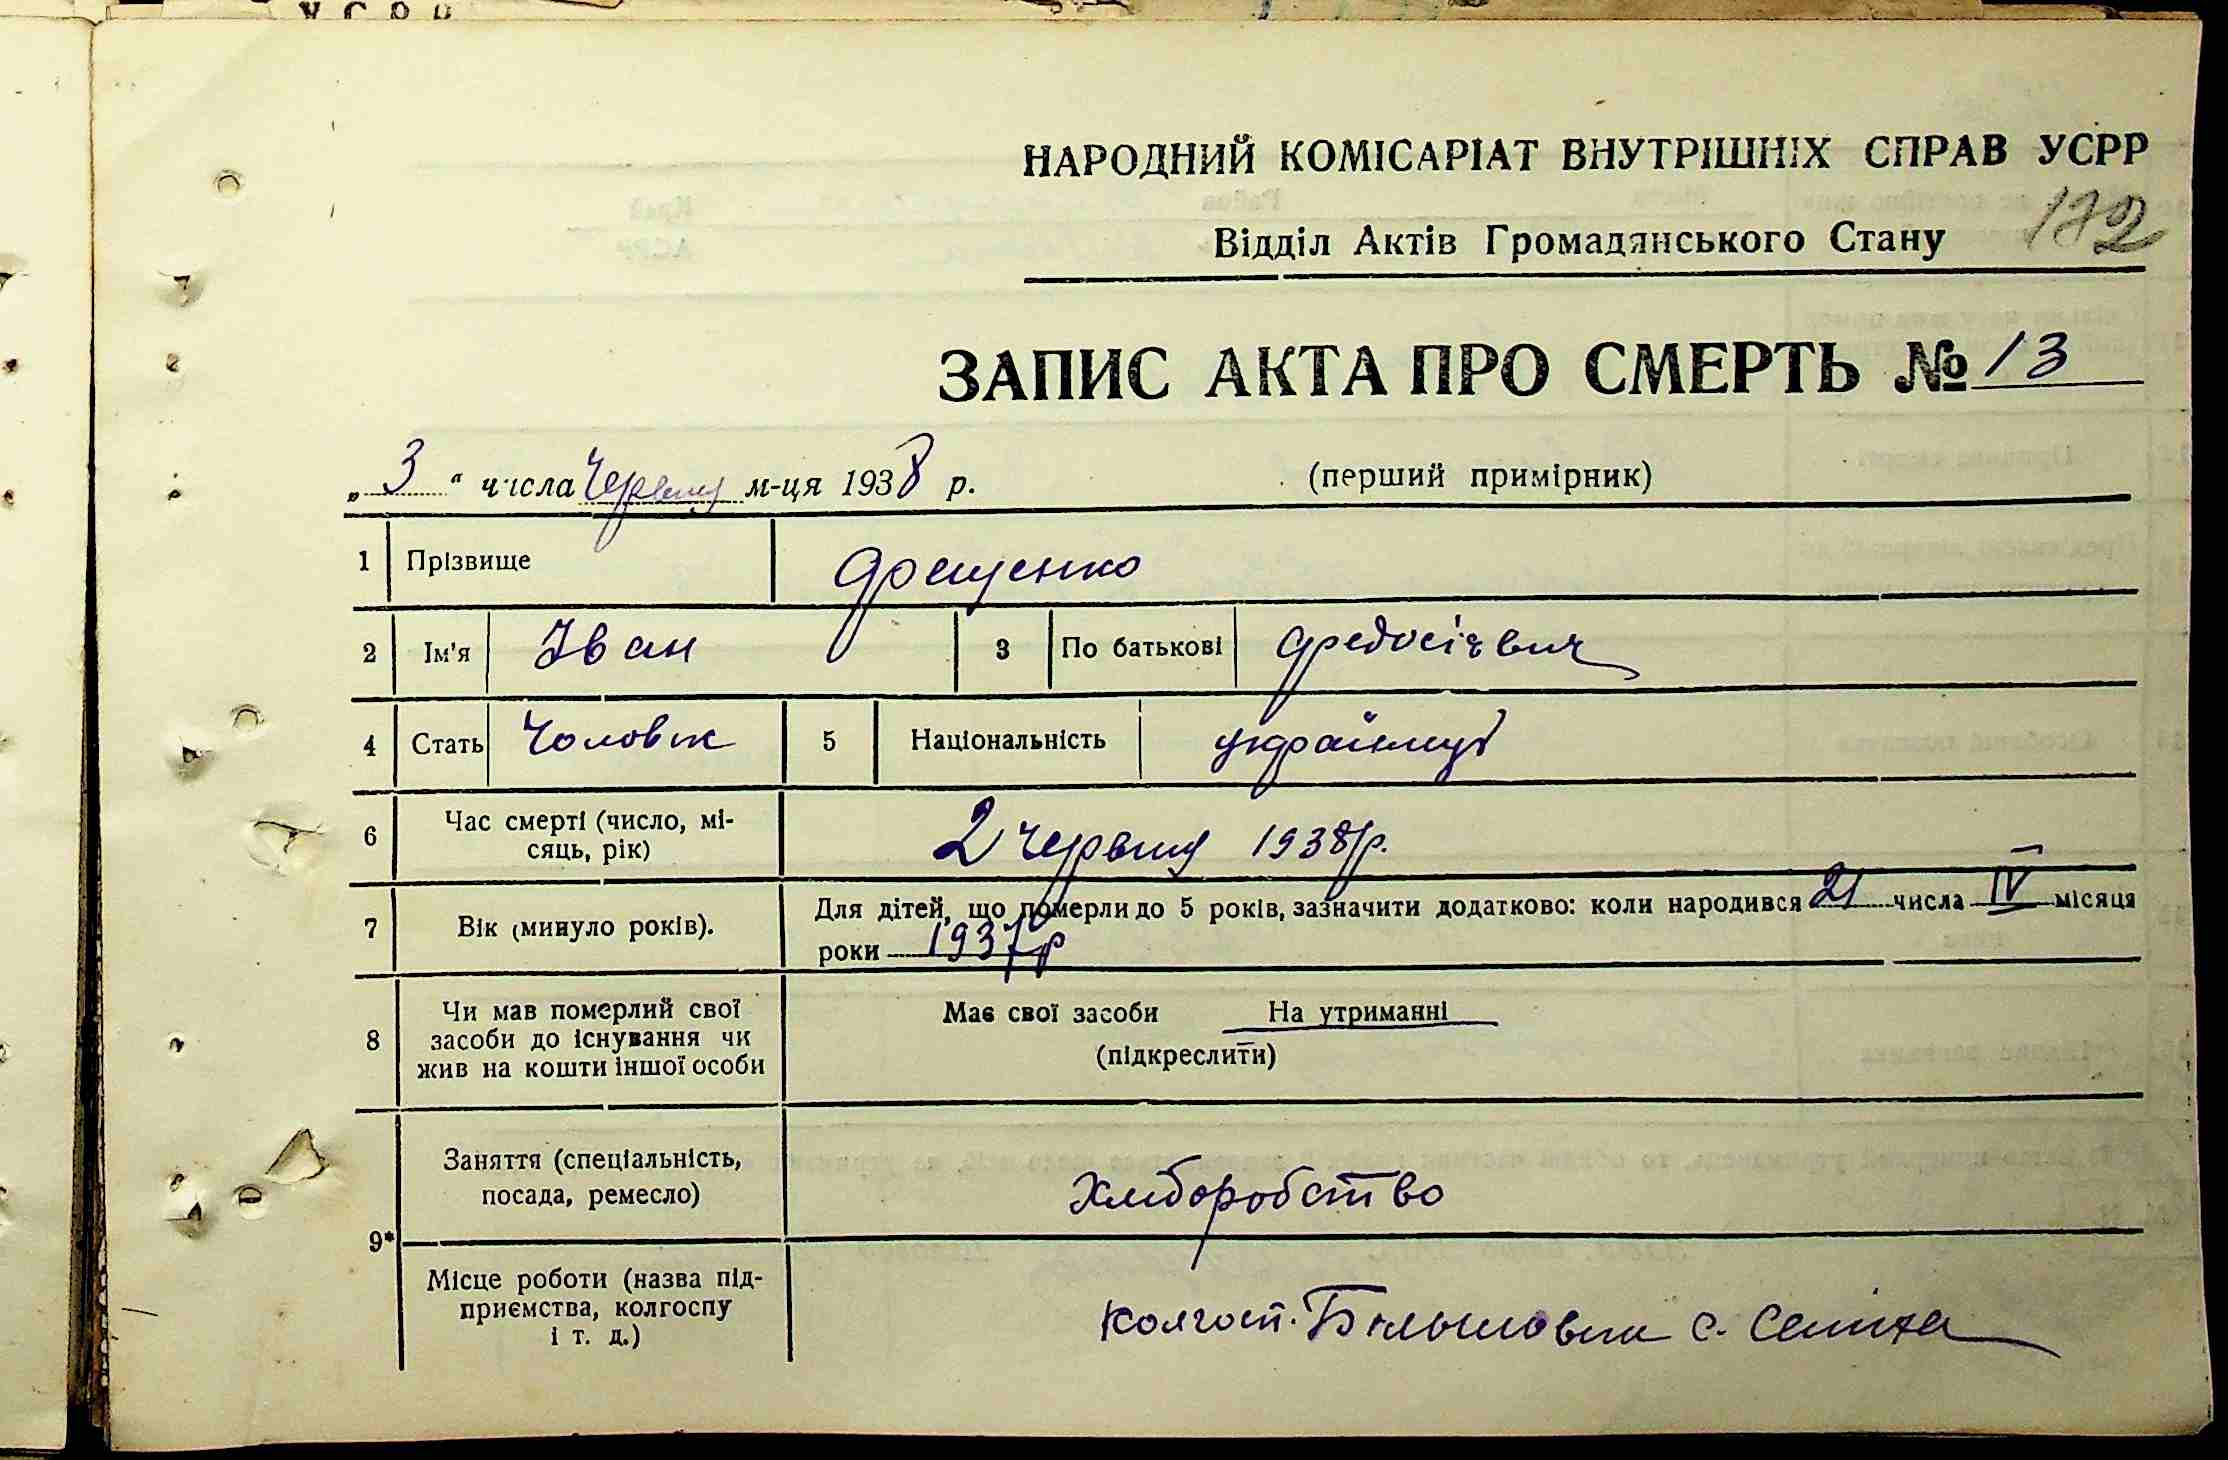 НАРОДНИЙ КОМІСАРІАТ ВНУТРІШНІХ СПРАВ УСРР
Відділ Актів Громадянського Стану
ЗАПИС АКТА ПРО СМЕРТЬ № 13
„ 3 “ числа Червня м-ця 1938 р. (перший примірник)
1 Прізвище Фещенко
2 Ім'я Іван 3 По батькові Федосієвич
4 Стать Чоловік 5 Національність українець
6 Час смерті (число, мі-
сяць, рік) 2 червня 1938 р.
7 Вік (минуло років). Для дітей, що померли до 5 років, зазначити додатково: коли народився 21 числа IV місяця
роки 1937 р
8 Чи мав померлий свої
засоби до існування чи
жив на кошти іншої особи
Має свої засоби На утриманні
(підкреслити)
9*
Заняття (спеціальність,
посада, ремесло) Хліборобство
Місце роботи (назва під-
приємства, колгоспу
і т. д.) колгосп. Більшовик с.